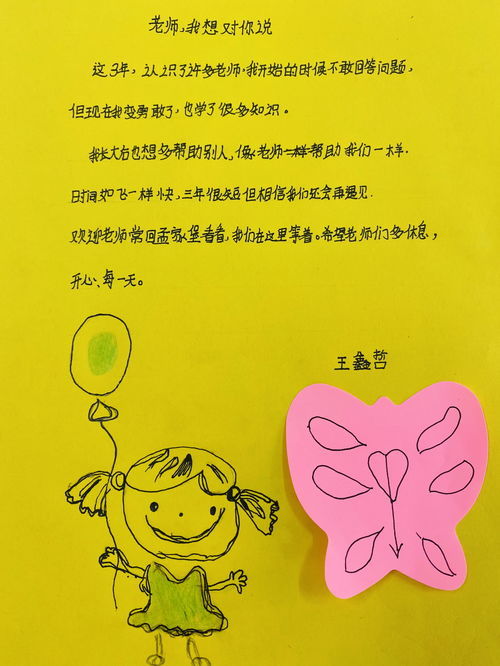 老师,我想对你说
这3年,认识了许多老师,我开始的时候不敢回答问题,
但现在我变勇敢了,也学了很多知识。
我长大后也想多帮助别人,像老师一样帮助我们一样.
时间如飞一样快,三年很短但相信我们还会再遇见.
欢迎老师常回孟家堡看看,我们在这里等着。希望老师们多休息,
开心、每一天。
王鑫哲